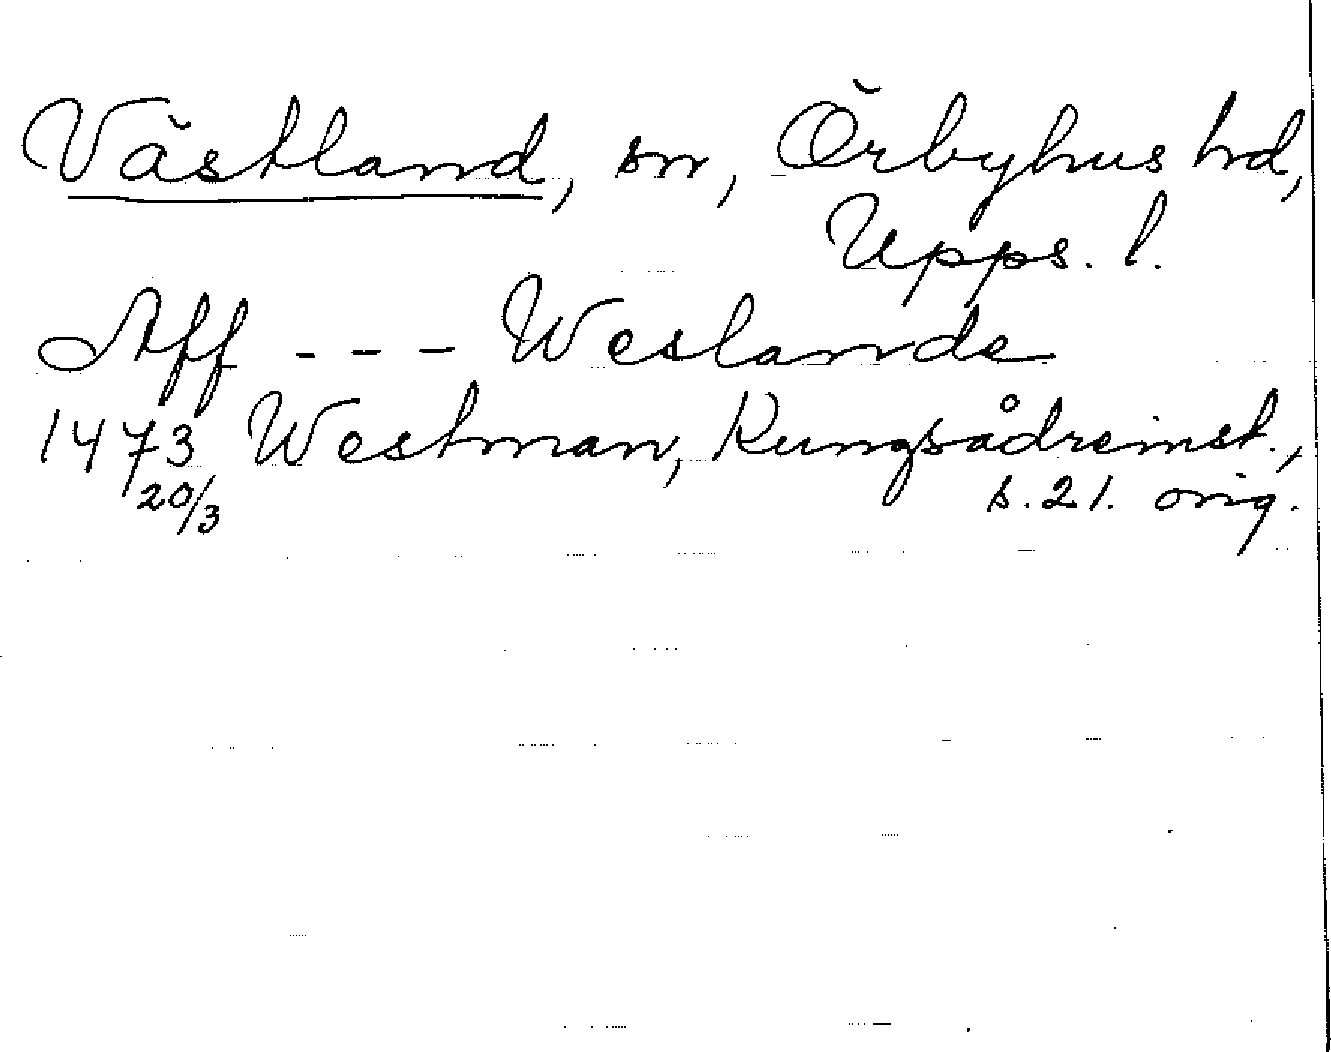 Västland, sn, Örbyhus hd,
Upps. l.
Aff - - - Weslande
1473 Westman, Kungsådreinst.,
20/3 s. 21. orig.